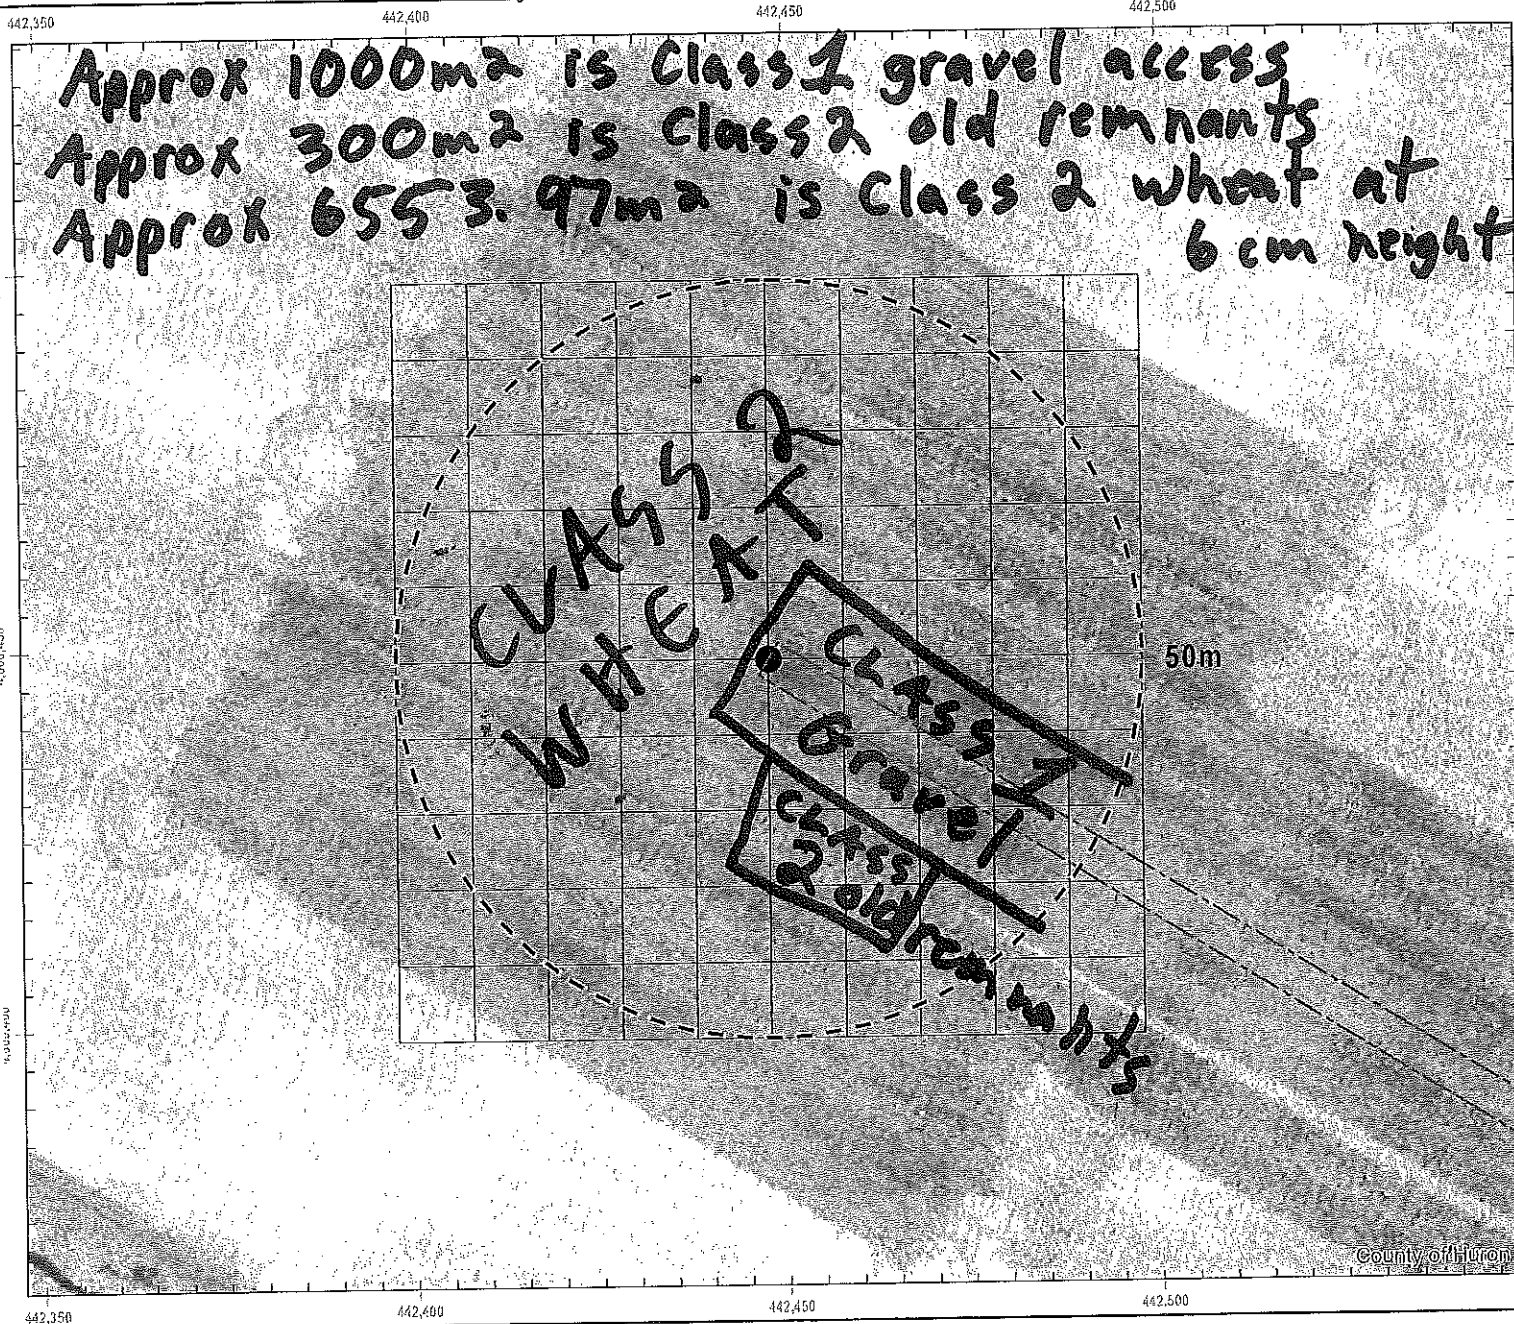 442,350 442,400 442,450 442,500
Approx 1000m2 is Class 1 gravel access
Approx 300m2 is Class 2 old remnants
Approx 6553.97m2 is Class 2 wheat at
6 cm height
CLASS 2
WHEAT
50m
CLASS 1
Gravel
CLASS
2 old remnnts
County of Huron
442,350 442,400 442,450 442,500